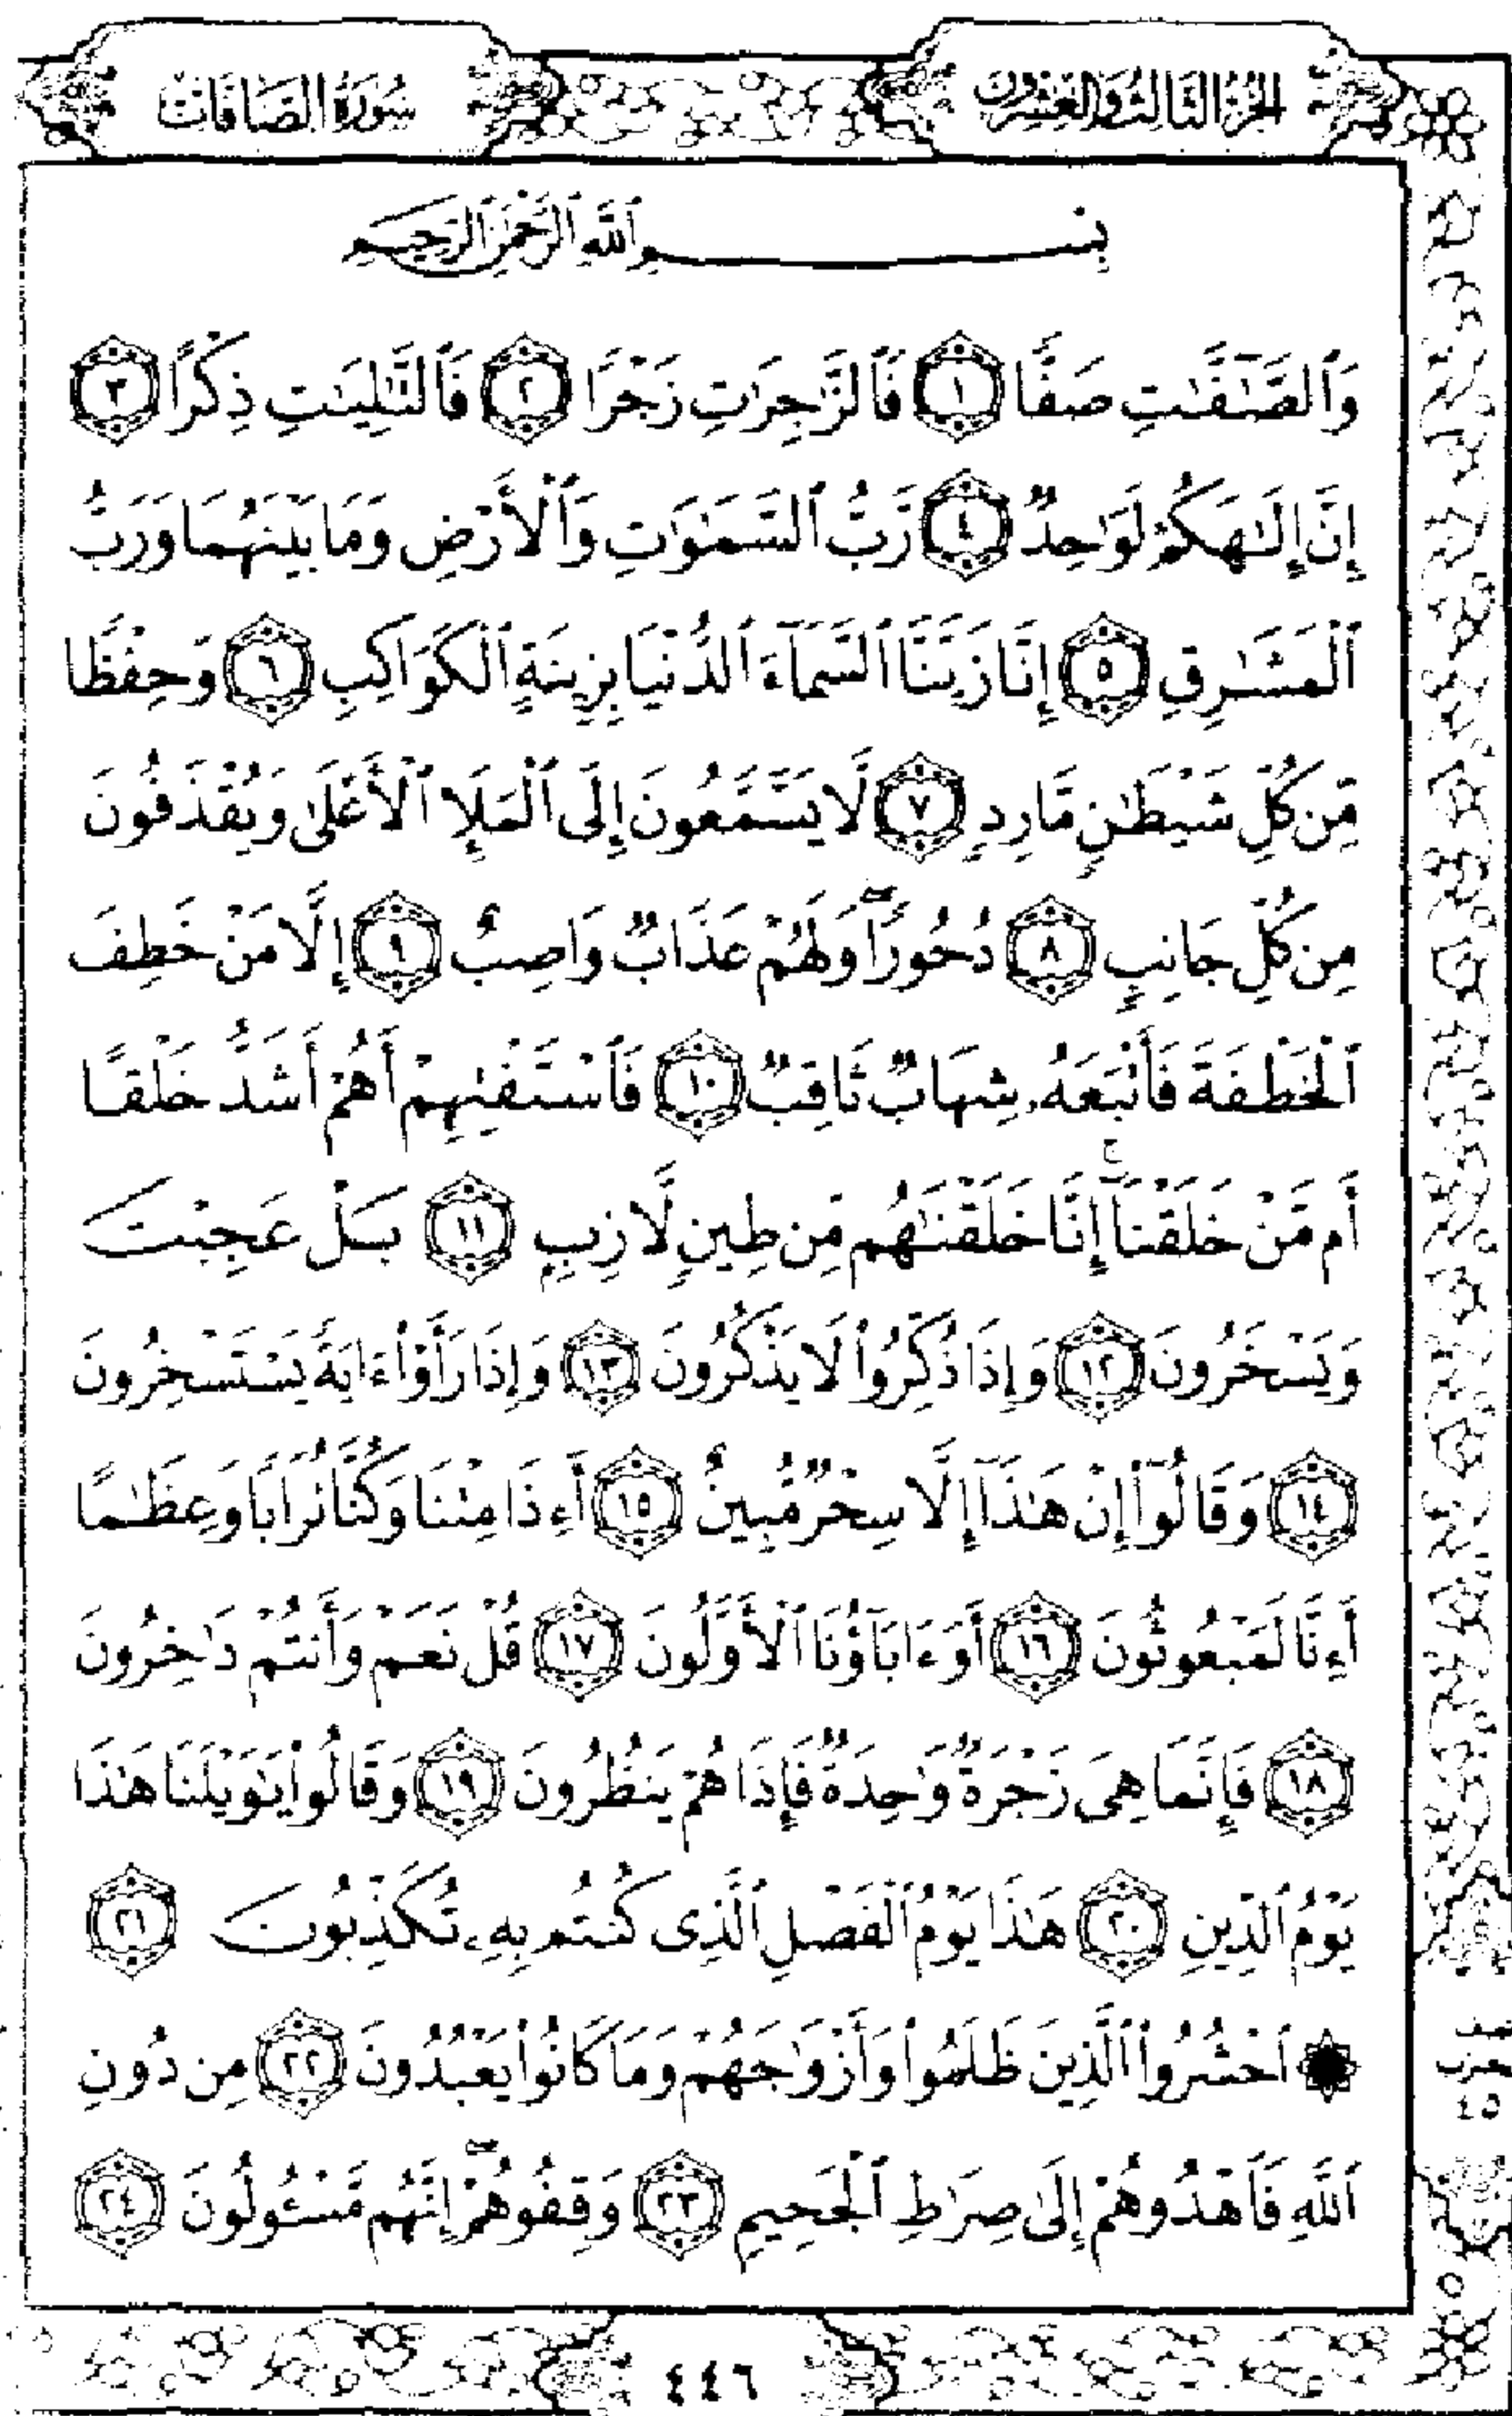 الجزء الثالث والعشرون
سورة الصافات
بِسْمِ ٱللَّهِ ٱلرَّحْمَٰنِ ٱلرَّحِيمِ
وَٱلصَّٰٓفَّٰتِ صَفًّا ١ فَٱلزَّٰجِرَٰتِ زَجْرًا ٢ فَٱلتَّٰلِيَٰتِ ذِكْرًا ٣
إِنَّ إِلَٰهَكُمْ لَوَٰحِدٌ ٤ رَّبُّ ٱلسَّمَٰوَٰتِ وَٱلْأَرْضِ وَمَا بَيْنَهُمَا وَرَبُّ
ٱلْمَشَٰرِقِ ٥ إِنَّا زَيَّنَّا ٱلسَّمَآءَ ٱلدُّنْيَا بِزِينَةٍ ٱلْكَوَاكِبِ ٦ وَحِفْظًا
مِّن كُلِّ شَيْطَٰنٍ مَّارِدٍ ٧ لَّا يَسَّمَّعُونَ إِلَى ٱلْمَلَإِ ٱلْأَعْلَىٰ وَيُقْذَفُونَ
مِن كُلِّ جَانِبٍ ٨ دُحُورًا ۖ وَلَهُمْ عَذَابٌ وَاصِبٌ ٩ إِلَّا مَنْ خَطِفَ
ٱلْخَطْفَةَ فَأَتْبَعَهُۥ شِهَابٌ ثَاقِبٌ ١٠ فَٱسْتَفْتِهِمْ أَهُمْ أَشَدُّ خَلْقًا
أَم مَّنْ خَلَقْنَآ ۚ إِنَّا خَلَقْنَٰهُم مِّن طِينٍ لَّازِبٍ ١١ بَلْ عَجِبْتَ
وَيَسْخَرُونَ ١٢ وَإِذَا ذُكِّرُوا۟ لَا يَذْكُرُونَ ١٣ وَإِذَا رَأَوْا۟ ءَايَةً يَسْتَسْخِرُونَ
١٤ وَقَالُوٓا۟ إِنْ هَٰذَآ إِلَّا سِحْرٌ مُّبِينٌ ١٥ أَءِذَا مِتْنَا وَكُنَّا تُرَابًا وَعِظَٰمًا
أَءِنَّا لَمَبْعُوثُونَ ١٦ أَوَءَابَآؤُنَا ٱلْأَوَّلُونَ ١٧ قُلْ نَعَمْ وَأَنتُمْ دَٰخِرُونَ
١٨ فَإِنَّمَا هِىَ زَجْرَةٌ وَٰحِدَةٌ فَإِذَا هُمْ يَنظُرُونَ ١٩ وَقَالُوا۟ يَٰوَيْلَنَا هَٰذَا
يَوْمُ ٱلدِّينِ ٢٠ هَٰذَا يَوْمُ ٱلْفَصْلِ ٱلَّذِى كُنتُم بِهِۦ تُكَذِّبُونَ ٢١
۞ ٱحْشُرُوا۟ ٱلَّذِينَ ظَلَمُوا۟ وَأَزْوَٰجَهُمْ وَمَا كَانُوا۟ يَعْبُدُونَ ٢٢ مِن دُونِ
ٱللَّهِ فَٱهْدُوهُمْ إِلَىٰ صِرَٰطِ ٱلْجَحِيمِ ٢٣ وَقِفُوهُمْ ۖ إِنَّهُم مَّسْـُٔولُونَ ٢٤
٤٥
٤٤٦